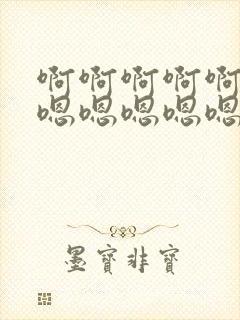 啊啊啊啊啊
嗯嗯嗯嗯嗯
墨寶非寶